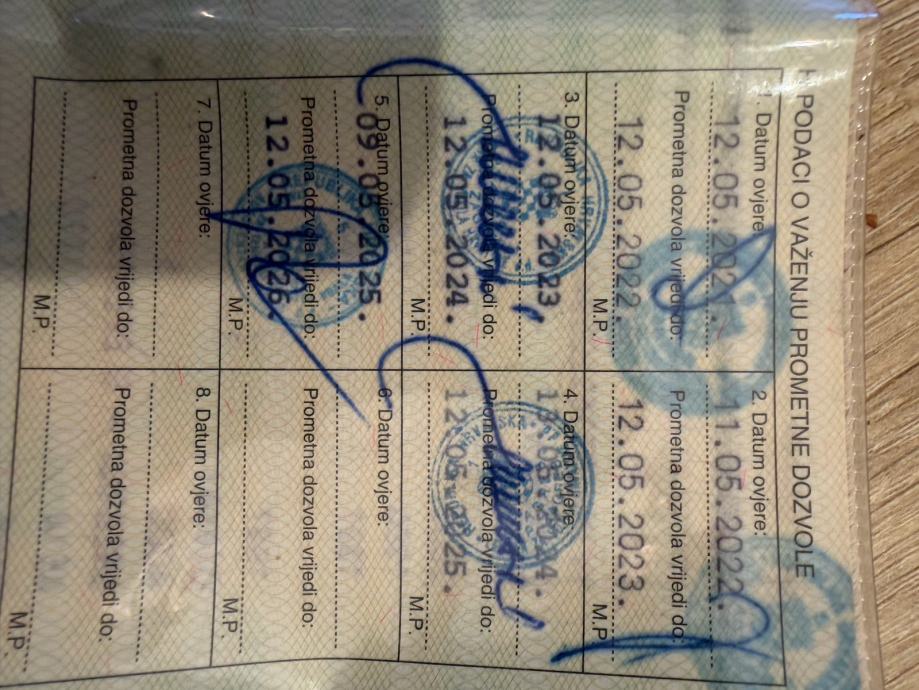 PODACI O VAŽENJU PROMETNE DOZVOLE
1. Datum ovjere:
12.05.2021.
Prometna dozvola vrijedi do:
12.05.2022.
M.P.
2. Datum ovjere:
11.05.2022.
Prometna dozvola vrijedi do:
12.05.2023.
M.P.
3. Datum ovjere:
12.05.2023.
Prometna dozvola vrijedi do:
12.05.2024.
M.P.
4. Datum ovjere:
Prometna dozvola vrijedi do:
12.05.2025.
5. Datum ovjere:
09.05.2025.
Prometna dozvola vrijedi do:
12.05.2026.
M.P.
6. Datum ovjere:
Prometna dozvola vrijedi do:
M.P.
7. Datum ovjere:
Prometna dozvola vrijedi do:
M.P.
8. Datum ovjere:
Prometna dozvola vrijedi do:
M.P.